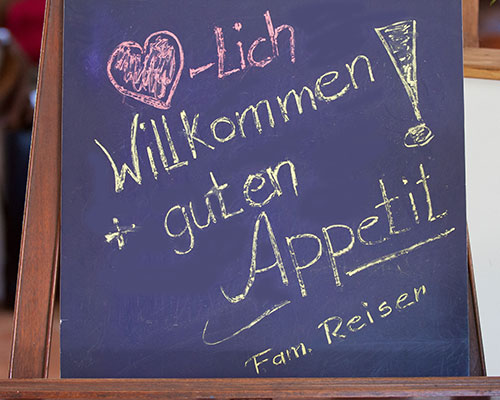 ♥-Lich
Willkommen!
+ guten
Appetit
Fam. Reiser